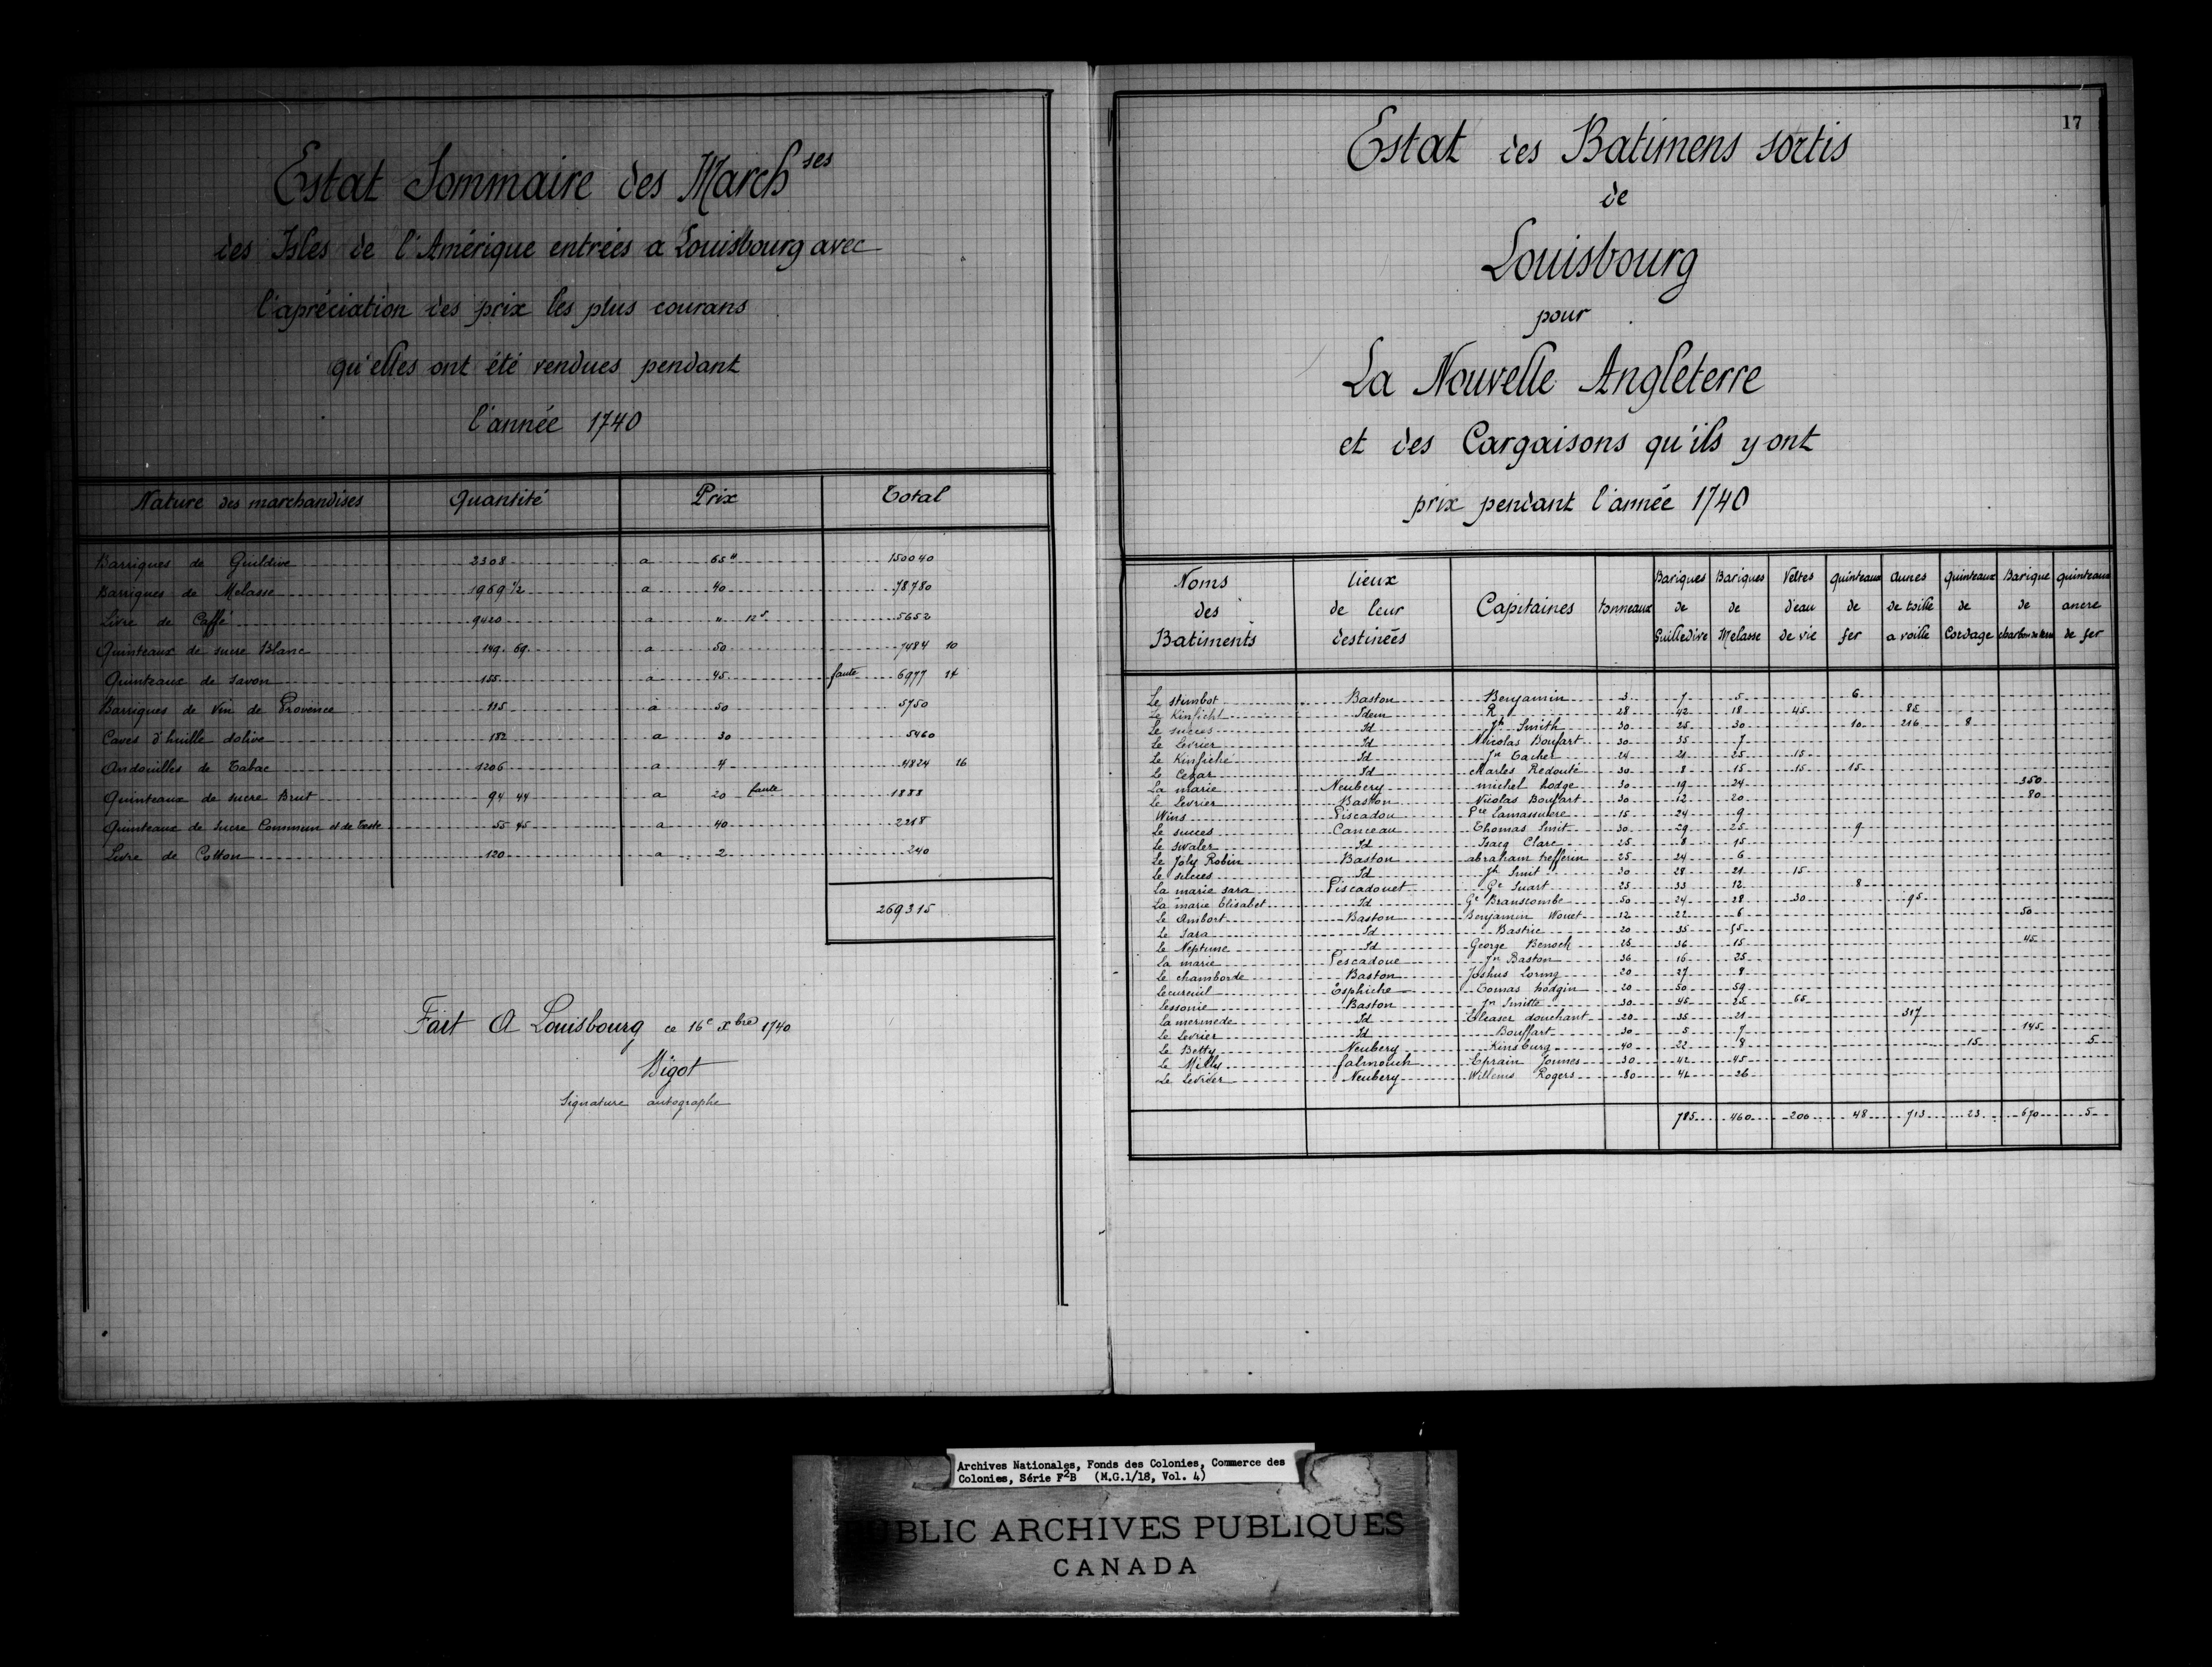 Estat Sommaire des March ses
des Isles de l'Amérique entrées a Louisbourg avec
l'apréciation des prix les plus courans
qu'elles ont été vendues pendant
l'année 1740
Nature des marchandises Quantité Prix Total
Barriques de Guildive 2308 a 65" 150040
Barriques de Melasse 1969 1/2 a 40 78780
Livre de Caffé 9420 a " 12s 5652
Quinteaux de sucre Blanc 149. 69 a 50 7484 10
Quinteaux de savon 155 a 45 faute 6977 14
Barriques de Vin de Provence 115 a 50 5750
Caves d'huille dolive 182 a 30 5460
Andouilles de Tabac 1206 a 4 4824 16
Quinteaux de sucre Brut 94 44 a 20 faute 1888
Quinteaux de sucre Commun et de Teste 55 45 a 40 2218
Livre de Cotton 120 a 2 240
269315
Fait A Louisbourg ce 16e xbre 1740
Bigot
Signature autographe
17
Estat des Batimens sortis
de
Louisbourg
pour
La Nouvelle Angleterre
et des Cargaisons qu'ils y ont
prix pendant l'année 1740
Noms lieux Bariques Bariques Veltes quinteaux aunes quinteaux Barique quinteaux
des de leur Capitaines tonneaux de de d'eau de de toille de de ancre
Batiments destinées Guilledive Melasse de vie fer a voille Cordage charbon de terre de fer
Le stembot Baston Benjamin 3 7 5 6
Le Kinficht Idem R 28 42 18 45 85
Le succes Id Jh Smith 30 25 30 10 216 8
Le Levrier Id Nicolas Boufart 30 35 7
Le Kinfiche Id Jn Tachet 24 21 25 15
Le Cezar Id charles Redouté 30 8 15 15 15
La marie Neubery michel hodge 30 19 24 350
Le Levrier Baston Nicolas Boufart 30 12 20 80
Wins Piscadou Pre Lamassuiere 15 24 9
Le succes Canceau Thomas Smit 30 29 25 9
Le swaler Id Isacq Clare 25 8 15
Le Joly Robin Baston abraham hefferin 25 24 6
Le succes Id Jh Smit 30 28 21 15
La marie sara Piscadouet Ge Suart 25 33 12 8
La marie Elisabet Id Ge Branscombe 50 24 28 30 95
Le Ambort Baston Benjamin Wouet 12 22 6 50
Le Sara Id Bastrie 20 35 55
Le Neptune Id George Benoch 25 36 15 45
La marie Pescadoue Jn Baston 36 16 25
Le chamborde Baston Joshus Loring 20 27 8
Lecureuil Esphiche Tomas hodgin 20 50 59
Lessonie Baston Jn Smitte 30 45 25 65
La mermede Id Eleaser douchant 20 35 21 317
Le Levrier Id Bouffart 30 5 7 145
Le Betty Neubery Kinsburg 40 22 8 15 5
Le Milly falmouth Eprain Jounes 30 42 45
Le Levrier Neubery Willems Rogers 80 41 26
785 460 200 48 713 23 670 5
Archives Nationales, Fonds des Colonies, Commerce des
Colonies, Série F2B (M.G.1/18, Vol. 4)
PUBLIC ARCHIVES PUBLIQUES
CANADA